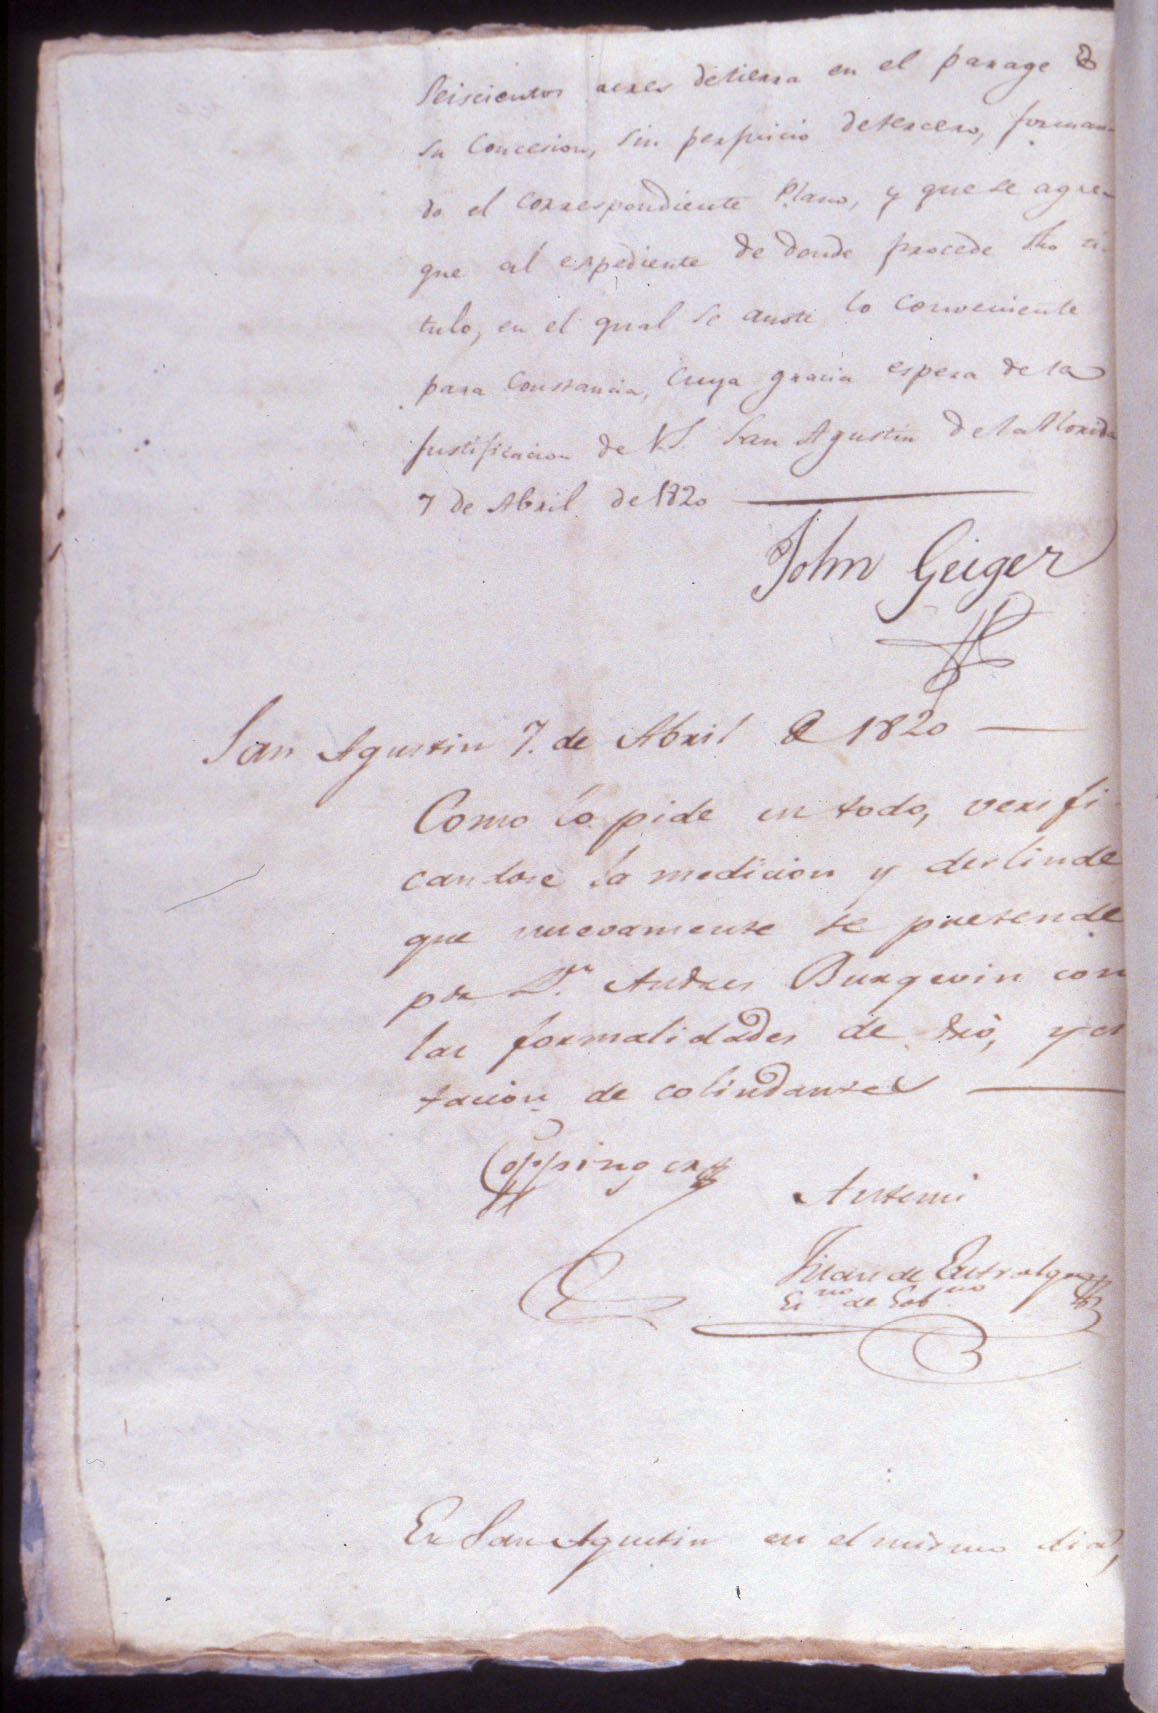 Seiscientos acres detierra en el parage de
su Concesion, sin perjuicio detercero, forman-
do el correspondiente Plano, y que se agre-
gue al expediente de donde procede dho ti-
tulo, en el qual se anote lo conveniente
para Constancia, Cuya gracia espera de la
Justificacion de V.S. San Agustin de la Florida
7 de Abril de 1820
John Geiger
San Agustin 7. de Abril de 1820
Como lo pide en todo, verifi-
candose la medicion y deslinde
que nuevamente se pretende
por Dn. Andres Burgevin con
las formalidades de dro, y ci
tacion de colindantes
Coppinger
Antemi
Juan de Entralgo
Esno de Gobno
En San Agustin en el mismo dia,